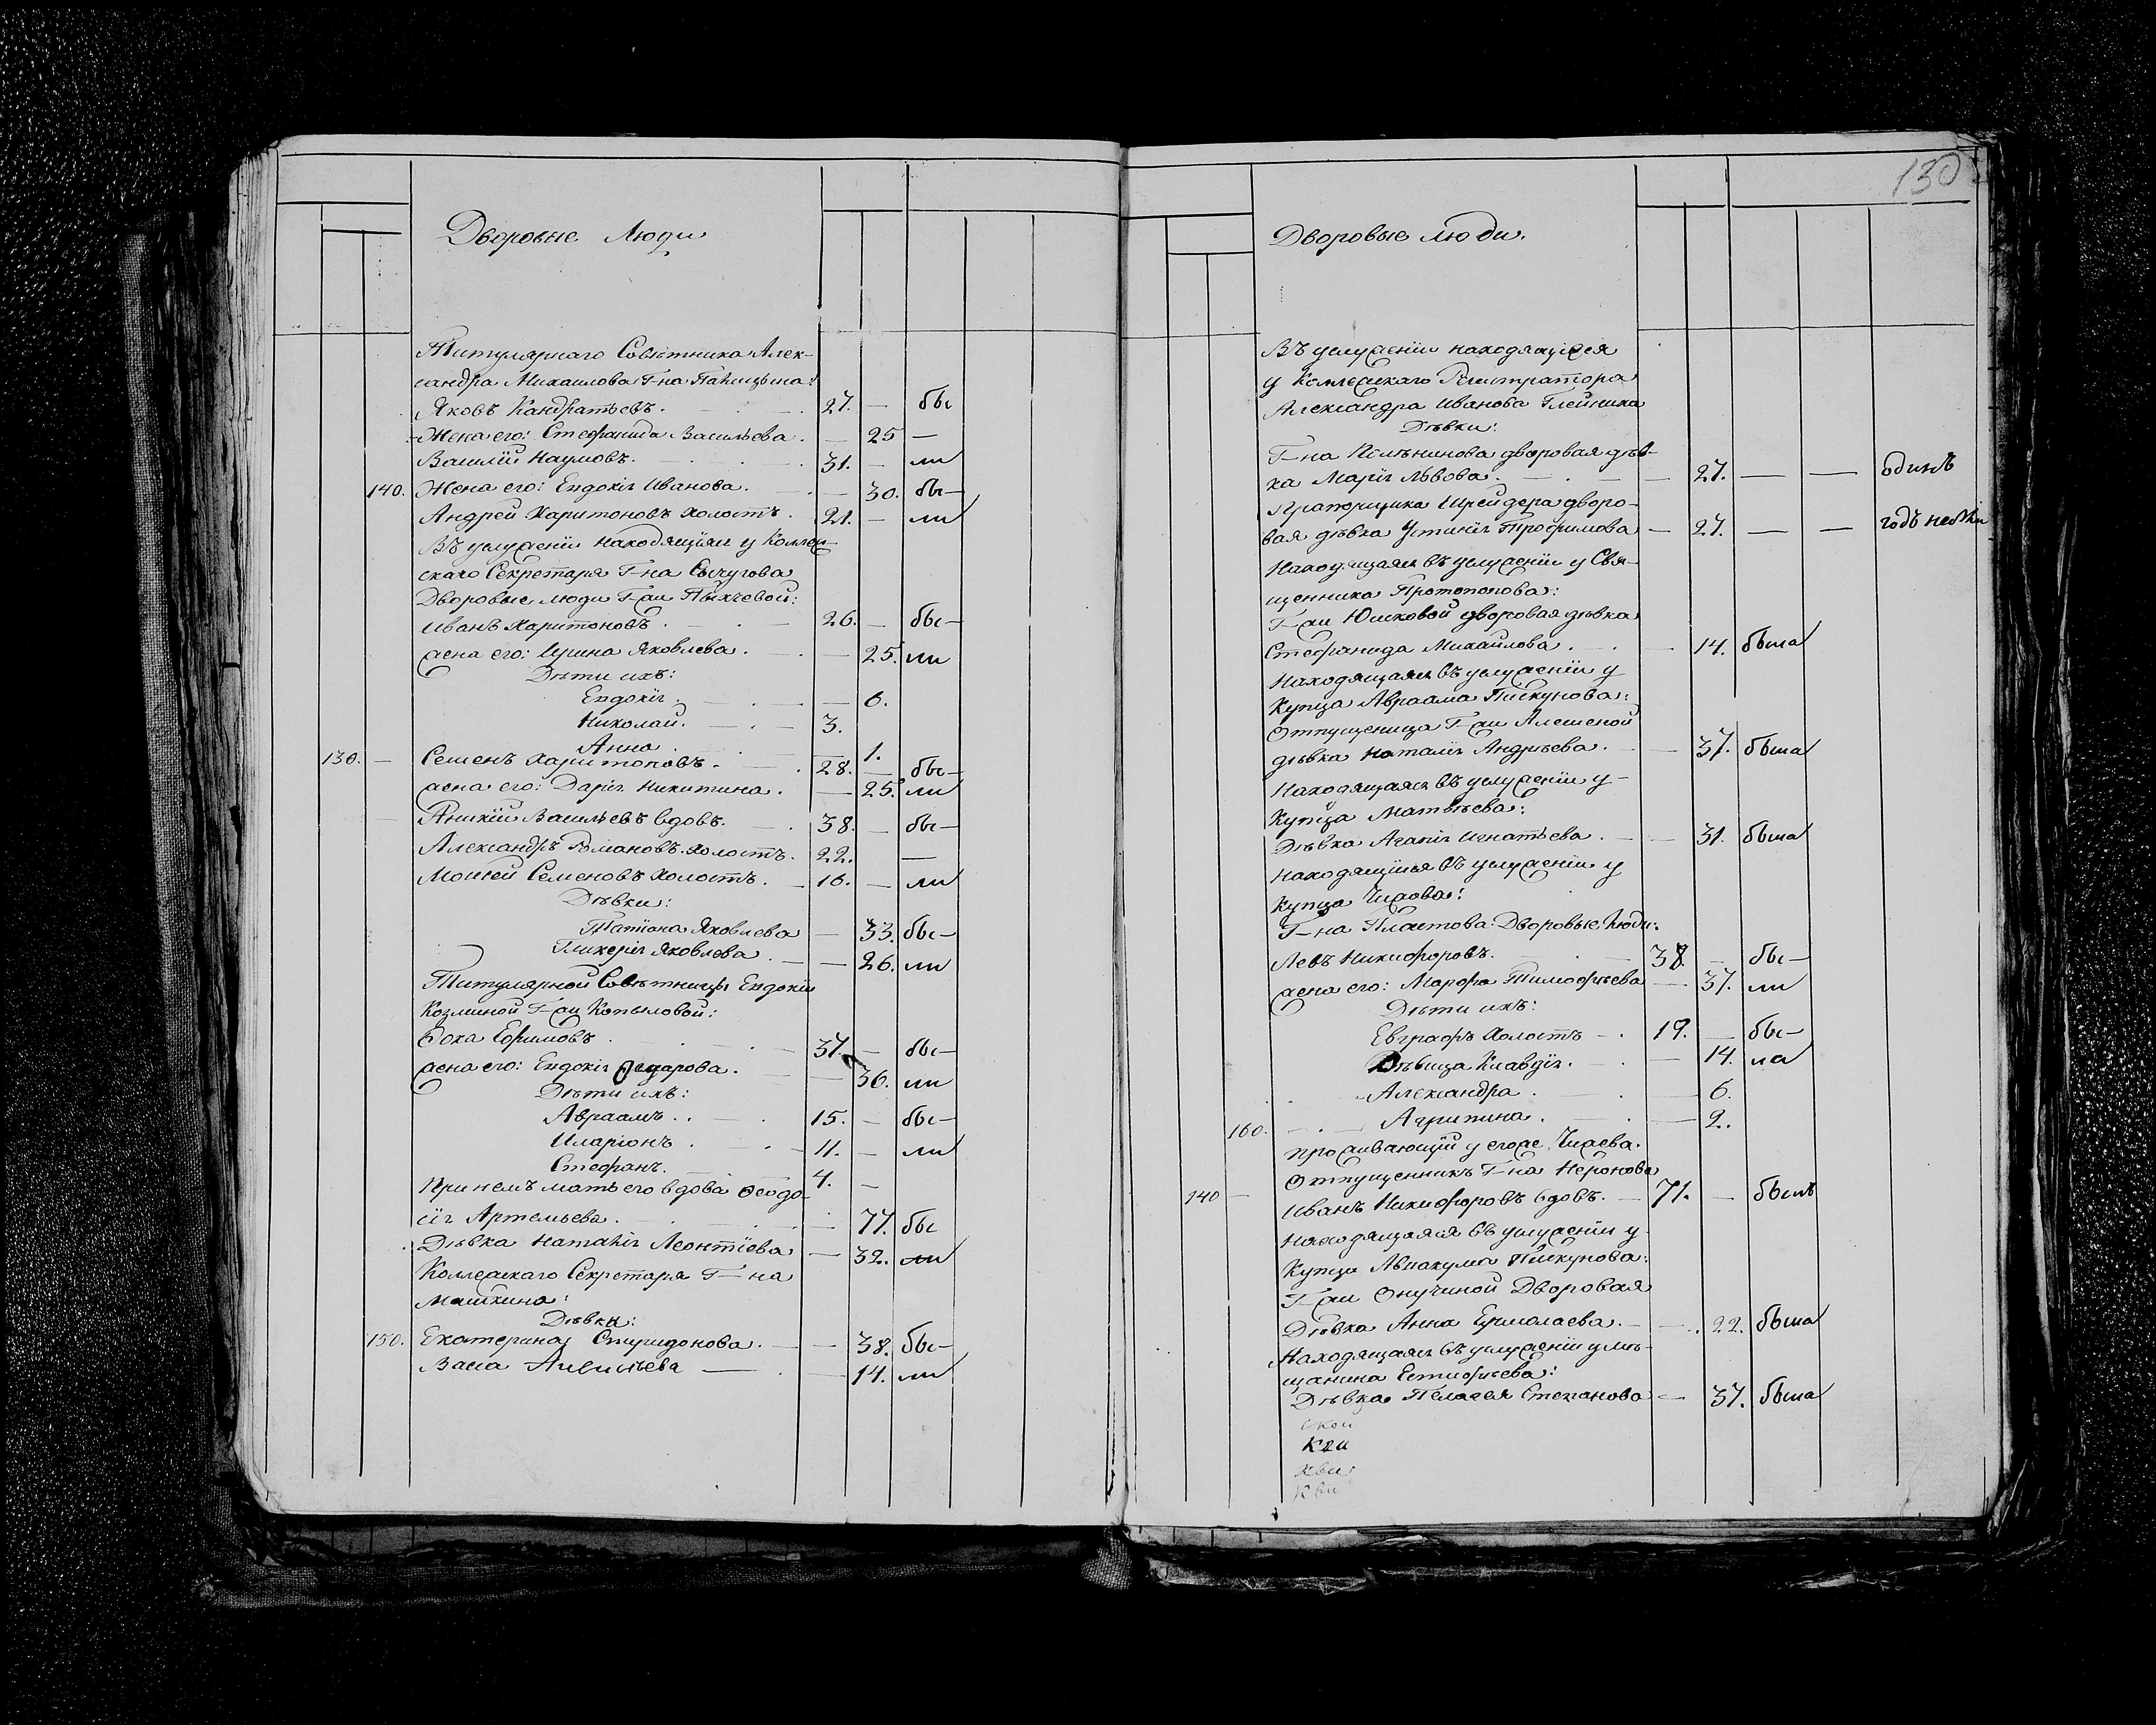 Дворовые Люди
Титулярнаго Совѣтника Алек-
сандра Михаилова Г-на Палицына:
Яковъ Кандратьевъ. 27. — бы
Жена его: Стефанида Васильева. — 25 —
Василiй Наумовъ. 31. — ли
140. Жена его: Евдокiя Иванова. — 30. бы-
Андрей Харитоновъ холостъ. 21. — ли
Въ услуженiи находящiяся у Коллеж-
скаго Секретаря Г-на Сычугова
Дворовые люди Г-жи Пыхчевой:
Иванъ Харитоновъ. 26. — бы-
жена его: Ирина Яковлева. — 25. ли
Дѣти ихъ:
Евдокiя. — 6.
Николай. — 3.
Анна. — 1.
130. — Семенъ Харитоновъ. 28. — бы-
жена его: Дарiя Никитина. — 25. ли
Аникiй Васильевъ вдовъ. — 38. — бы-
Александръ Романовъ холостъ. 22. —
Моисей Семеновъ холостъ. — 16. — ли
Дѣвки:
Татiана Яковлева — 33. бы-
Гликерiя Яковлева. — 26. ли
Титулярной Совѣтницы Евдокiи
Козминой Г-жи Копыловой:
Фока Ефимовъ 37. — бы-
жена его: Евдокiя Федорова. 36. ли
Дѣти ихъ:
Авраамъ. 15. — бы-
Иларiонъ. 11. — ли
Стефанъ. 4. —
При немъ мать его вдова Феодо-
сiя Артемьева. — 77. бы
Дѣвка Наталiя Леонтiева — 32. ли
Коллежскаго Секретаря Г-на
Машкина:
Дѣвки:
150. Екатерина Спиридонова. — 38. бы-
Васса — 14. ли
130
Дворовые люди.
Въ услуженiи находящiяся
у Коллежскаго Регистратора
Александра Иванова
Дѣвки:
Г-на дворовая дѣв-
ка Марiя Львова. — 27. — — одинъ
Прапорщика Шрейдера дворо-
вая дѣвка Устинiя Трофимова — 27. — — годъ
Находящаяся въ услуженiи у Свя-
щенника Протопопова:
Г-жи Юшковой дворовая дѣвка
Стефанида Михайлова. — 14. была
Находящаяся въ услуженiи у
Купца Авраама Пискунова:
Отпущеница Г-жи
дѣвка Наталiя Андрѣева. — 37. была
Находящаяся въ услуженiи у
Купца Матвѣева:
Дѣвка Агапiя Игнатьева. — 31. была
Находящiяся въ услуженiи у
Купца Чижова:
Г-на Пластова Дворовые Люди:
Левъ Никифоровъ. 38. — бы-
жена его: Марфа Тимофѣева — 37. ли
Дѣти ихъ:
Евграфъ Холостъ — 19. — бы-
Дѣвица Клавдiя. — 14. ла
Александра. — 6.
160. — Агрипина. — 2.
проживающiй у егоже
Отпущенникъ Г-на Неронова
140 — Иванъ Никифоровъ вдовъ. — 71. — былъ
Находящаяся въ услуженiи у
Купца Аввакума Пискунова:
Г-жи Онучиной Дворовая
Дѣвка Анна Ермолаева. — 22. была
Находящаяся въ услуженiи у мѣ-
щанина Евтифѣева:
Дѣвка Пелагея Степанова — 37. была